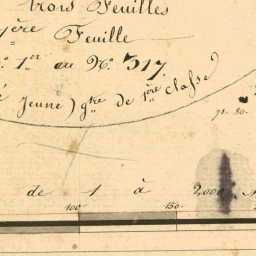 trois Feuilles
ère Feuille
1er au No. 317
Jeune) gtre de 1ère classe
de 1 à 2,000
100 150